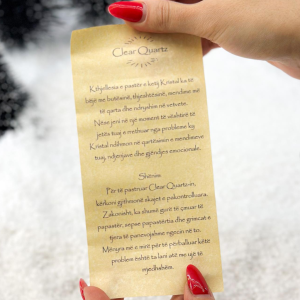 Clear Quartz
Kthjelltësia e pastër e ketij Kristal ka të
bëjë me butësinë, thjeshtësinë, mendime më
të qarta dhe ndryshim në vetvete.
Nëse jeni në një moment të vështirë të
jetës tuaj e rrethuar nga probleme ky
Kristal ndihmon në qartësimin e mendimeve
tuaj, ndjenjave dhe gjëndjes emocionale.
Shënim
Për të pastruar Clear Quartz-in,
kërkoni gjithmonë skajet e pakontrolluara.
Zakonisht, ka shumë gurë të çmuar të
papastër, sepse papastërtia dhe grimcat e
tjera të parevojshme ngecin në to.
Mënyra më e mirë për të përballuar këtë
problem është ta lani atë me ujë të
mjedhshëm.